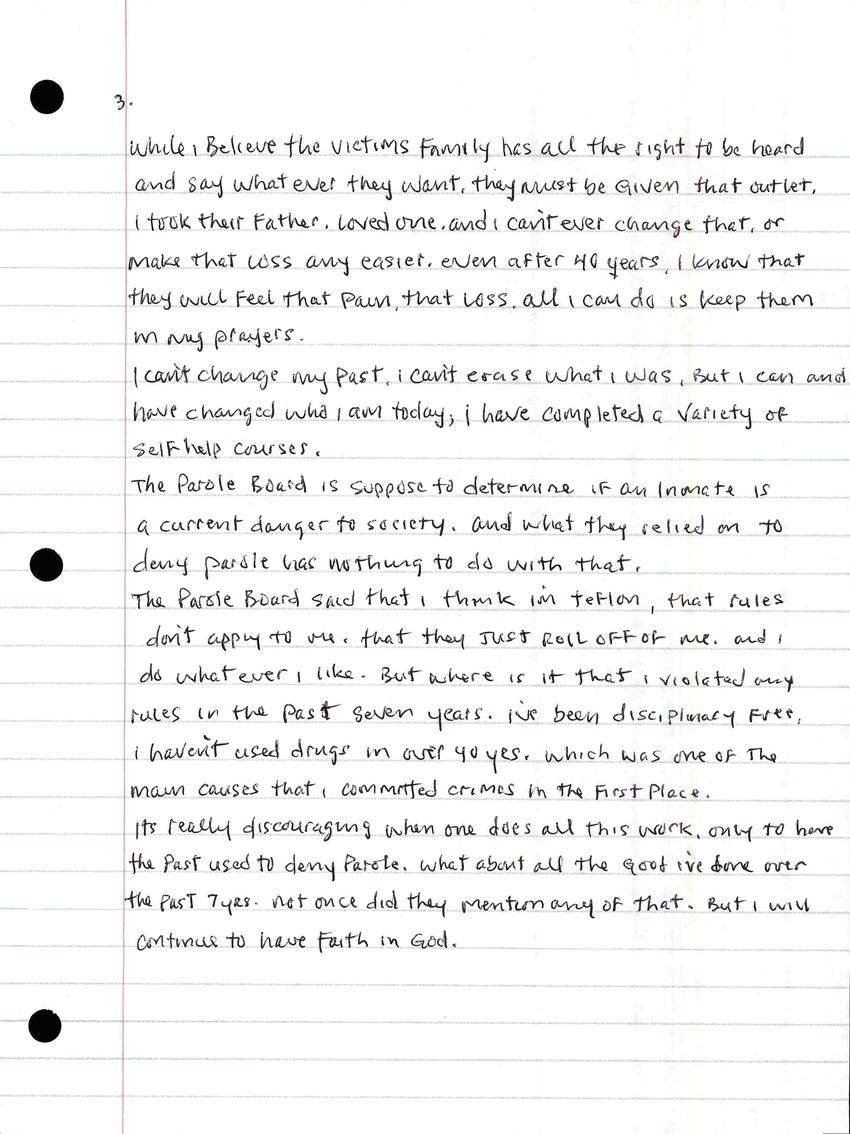 3.
While i Believe the victims Family has all the right to be heard
and say what ever they want. they must be Given that outlet.
i took their Father. loved one. and i can't ever change that, or
make that loss any easier. even after 40 years, I know that
they will Feel that Pain, that Loss. all i can do is keep them
in my prayers.
I can't change my Past, i can't erase what i was, But i can and
have changed who i am today; i have completed a variety of
self help courses.
The Parole Board is suppose to determine if an Inmate is
a current danger to society. and what they relied on to
deny parole has nothing to do with that.
The Parole Board said that i think i'm teflon, that rules
don't apply to me. that they Just Roll OFF of me. and i
do what ever i like. But where is it that i violated any
rules in the Past seven years. i've been disciplinary Free,
i haven't used drugs in over 40 yrs. which was one of The
main causes that i committed crimes in the First Place.
Its really discouraging when one does all this work, only to have
the Past used to deny Parole. what about all the good i've done over
the past 7 yrs. not once did they mention any of that. But i will
continue to have Faith in God.